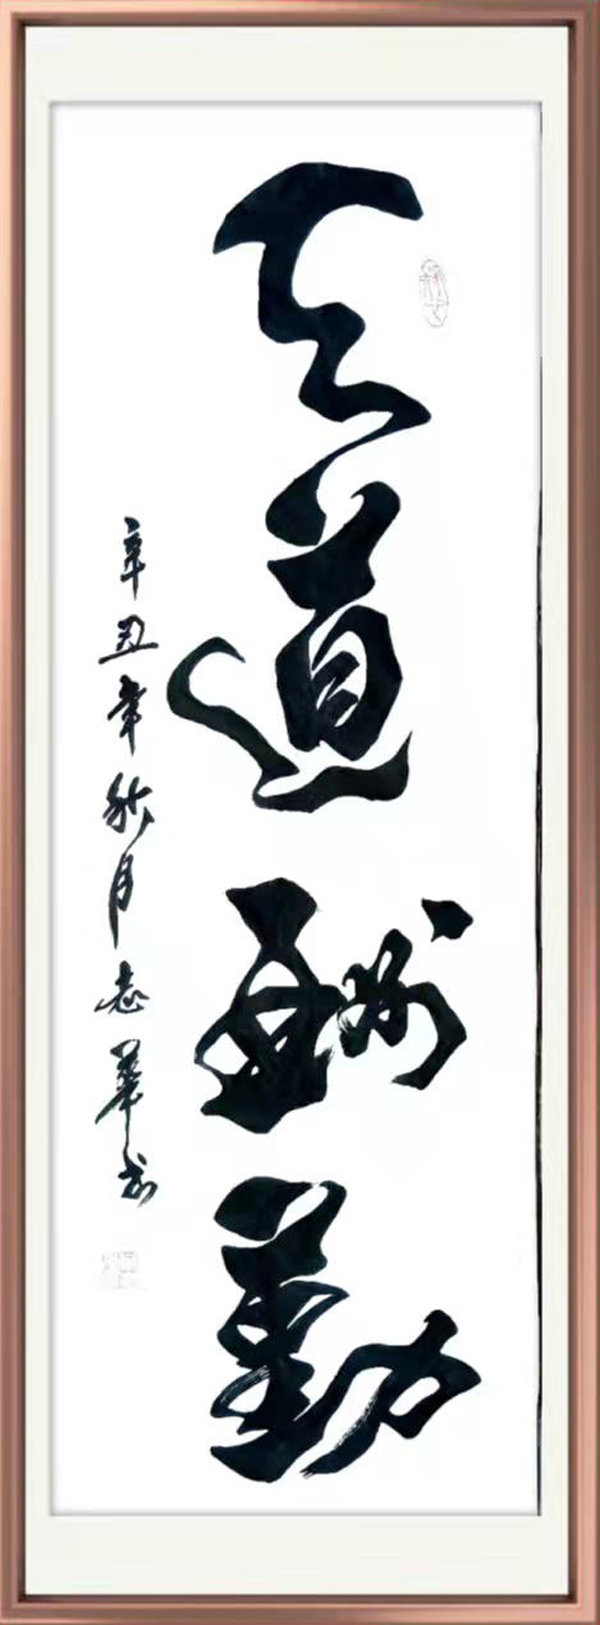 天道酬勤
辛丑年秋月志华书